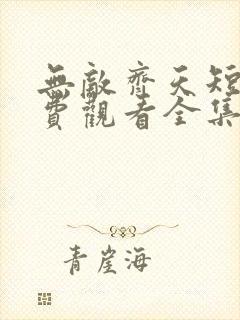 無敵齊天短
費觀看全集
青崖海